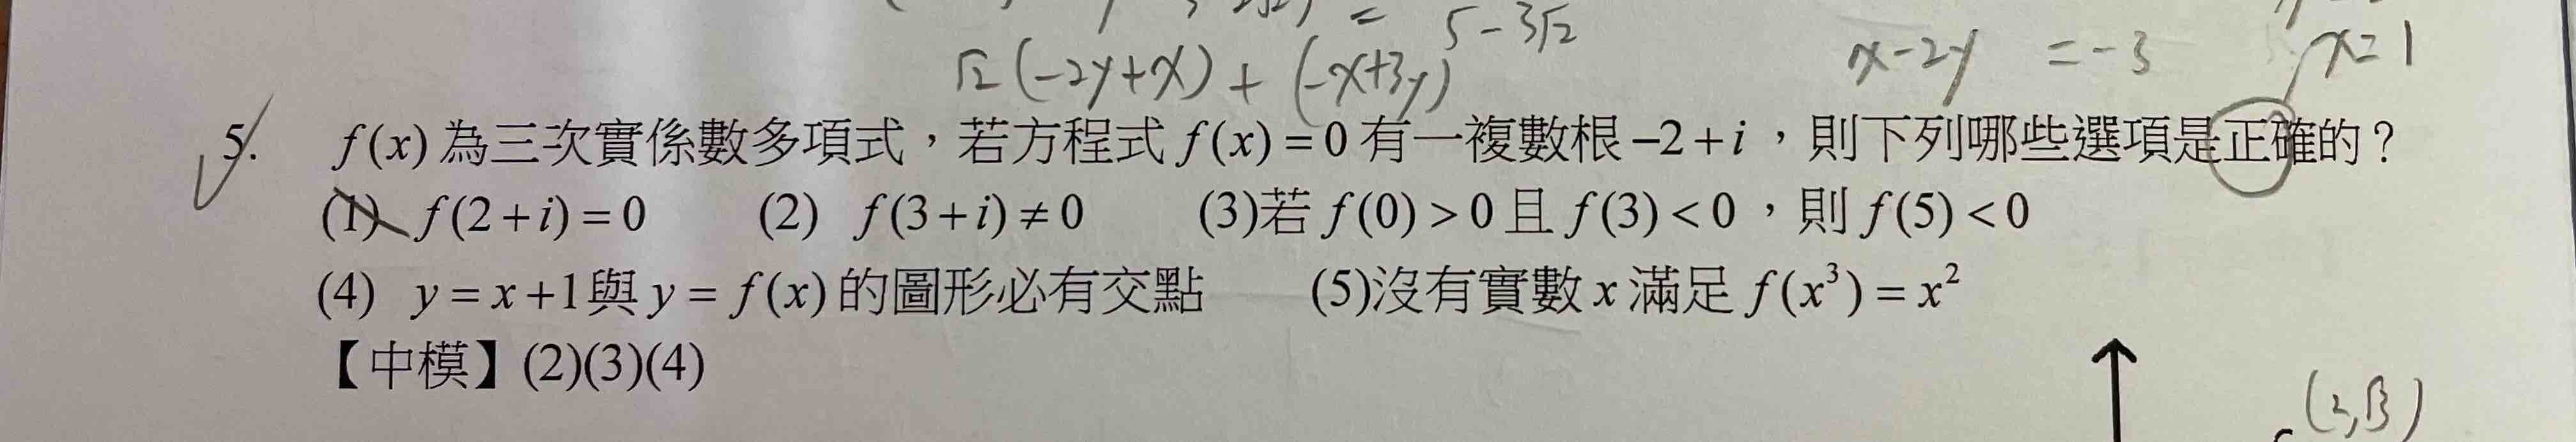 = 5-3√2
√2(-2y+x)+(-x+3y)
x-2y =-3
x=1
5. f(x)為三次實係數多項式，若方程式 f(x)=0 有一複數根 -2+i，則下列哪些選項是正確的？
(1) f(2+i)=0 (2) f(3+i)≠0 (3)若 f(0)>0 且 f(3)<0，則 f(5)<0
(4) y=x+1與 y=f(x) 的圖形必有交點 (5)沒有實數 x 滿足 f(x³)=x²
【中模】(2)(3)(4)